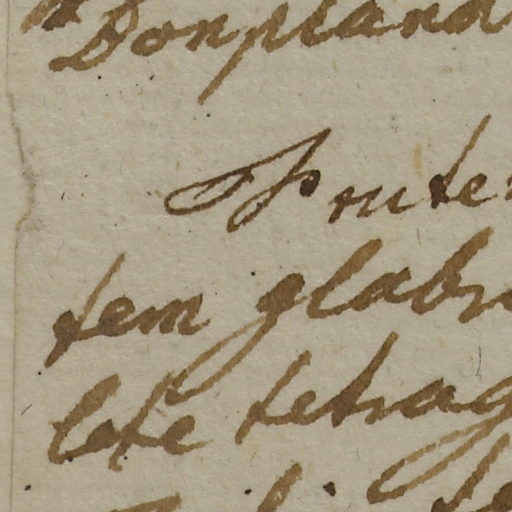 Bonpland
Frute
tem glabr
late tetrag